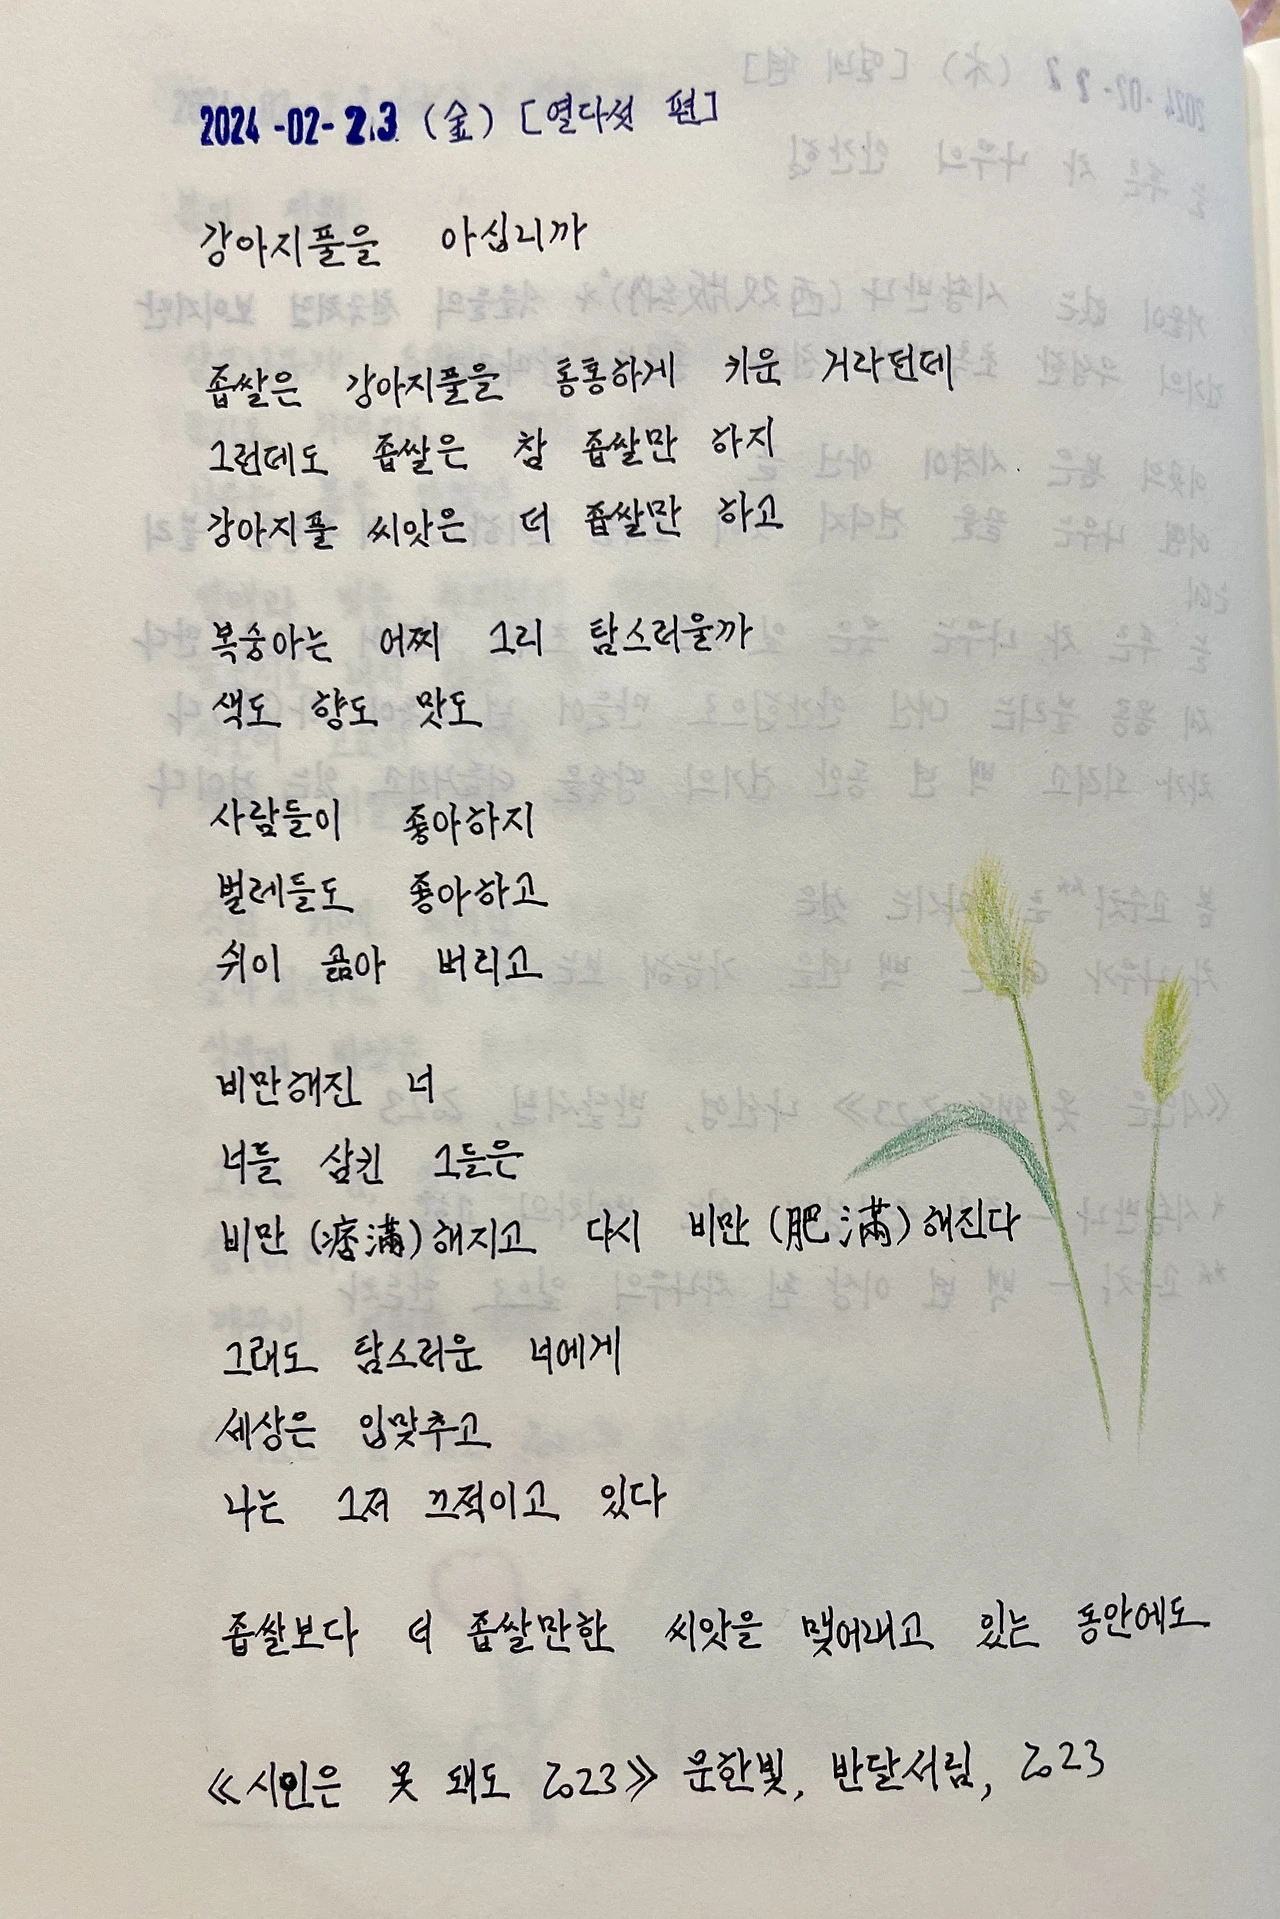 2024-02-23 (金) [열다섯 편]
강아지풀을 아십니까
좁쌀은 강아지풀을 통통하게 키운 거라던데
그런데도 좁쌀은 참 좁쌀만 하지
강아지풀 씨앗은 더 좁쌀만 하고
복숭아는 어찌 그리 탐스러울까
색도 향도 맛도
사람들이 좋아하지
벌레들도 좋아하고
쉬이 곪아 버리고
비만해진 너
너들 삼킨 그들은
비만(痞滿)해지고 다시 비만(肥滿)해진다
그래도 탐스러운 너에게
세상은 입맞추고
나는 그저 끄적이고 있다
좁쌀보다 더 좁쌀만한 씨앗을 맺어내고 있는 동안에도
《시인은 못 돼도 2023》 문한빛, 반달서림, 2023